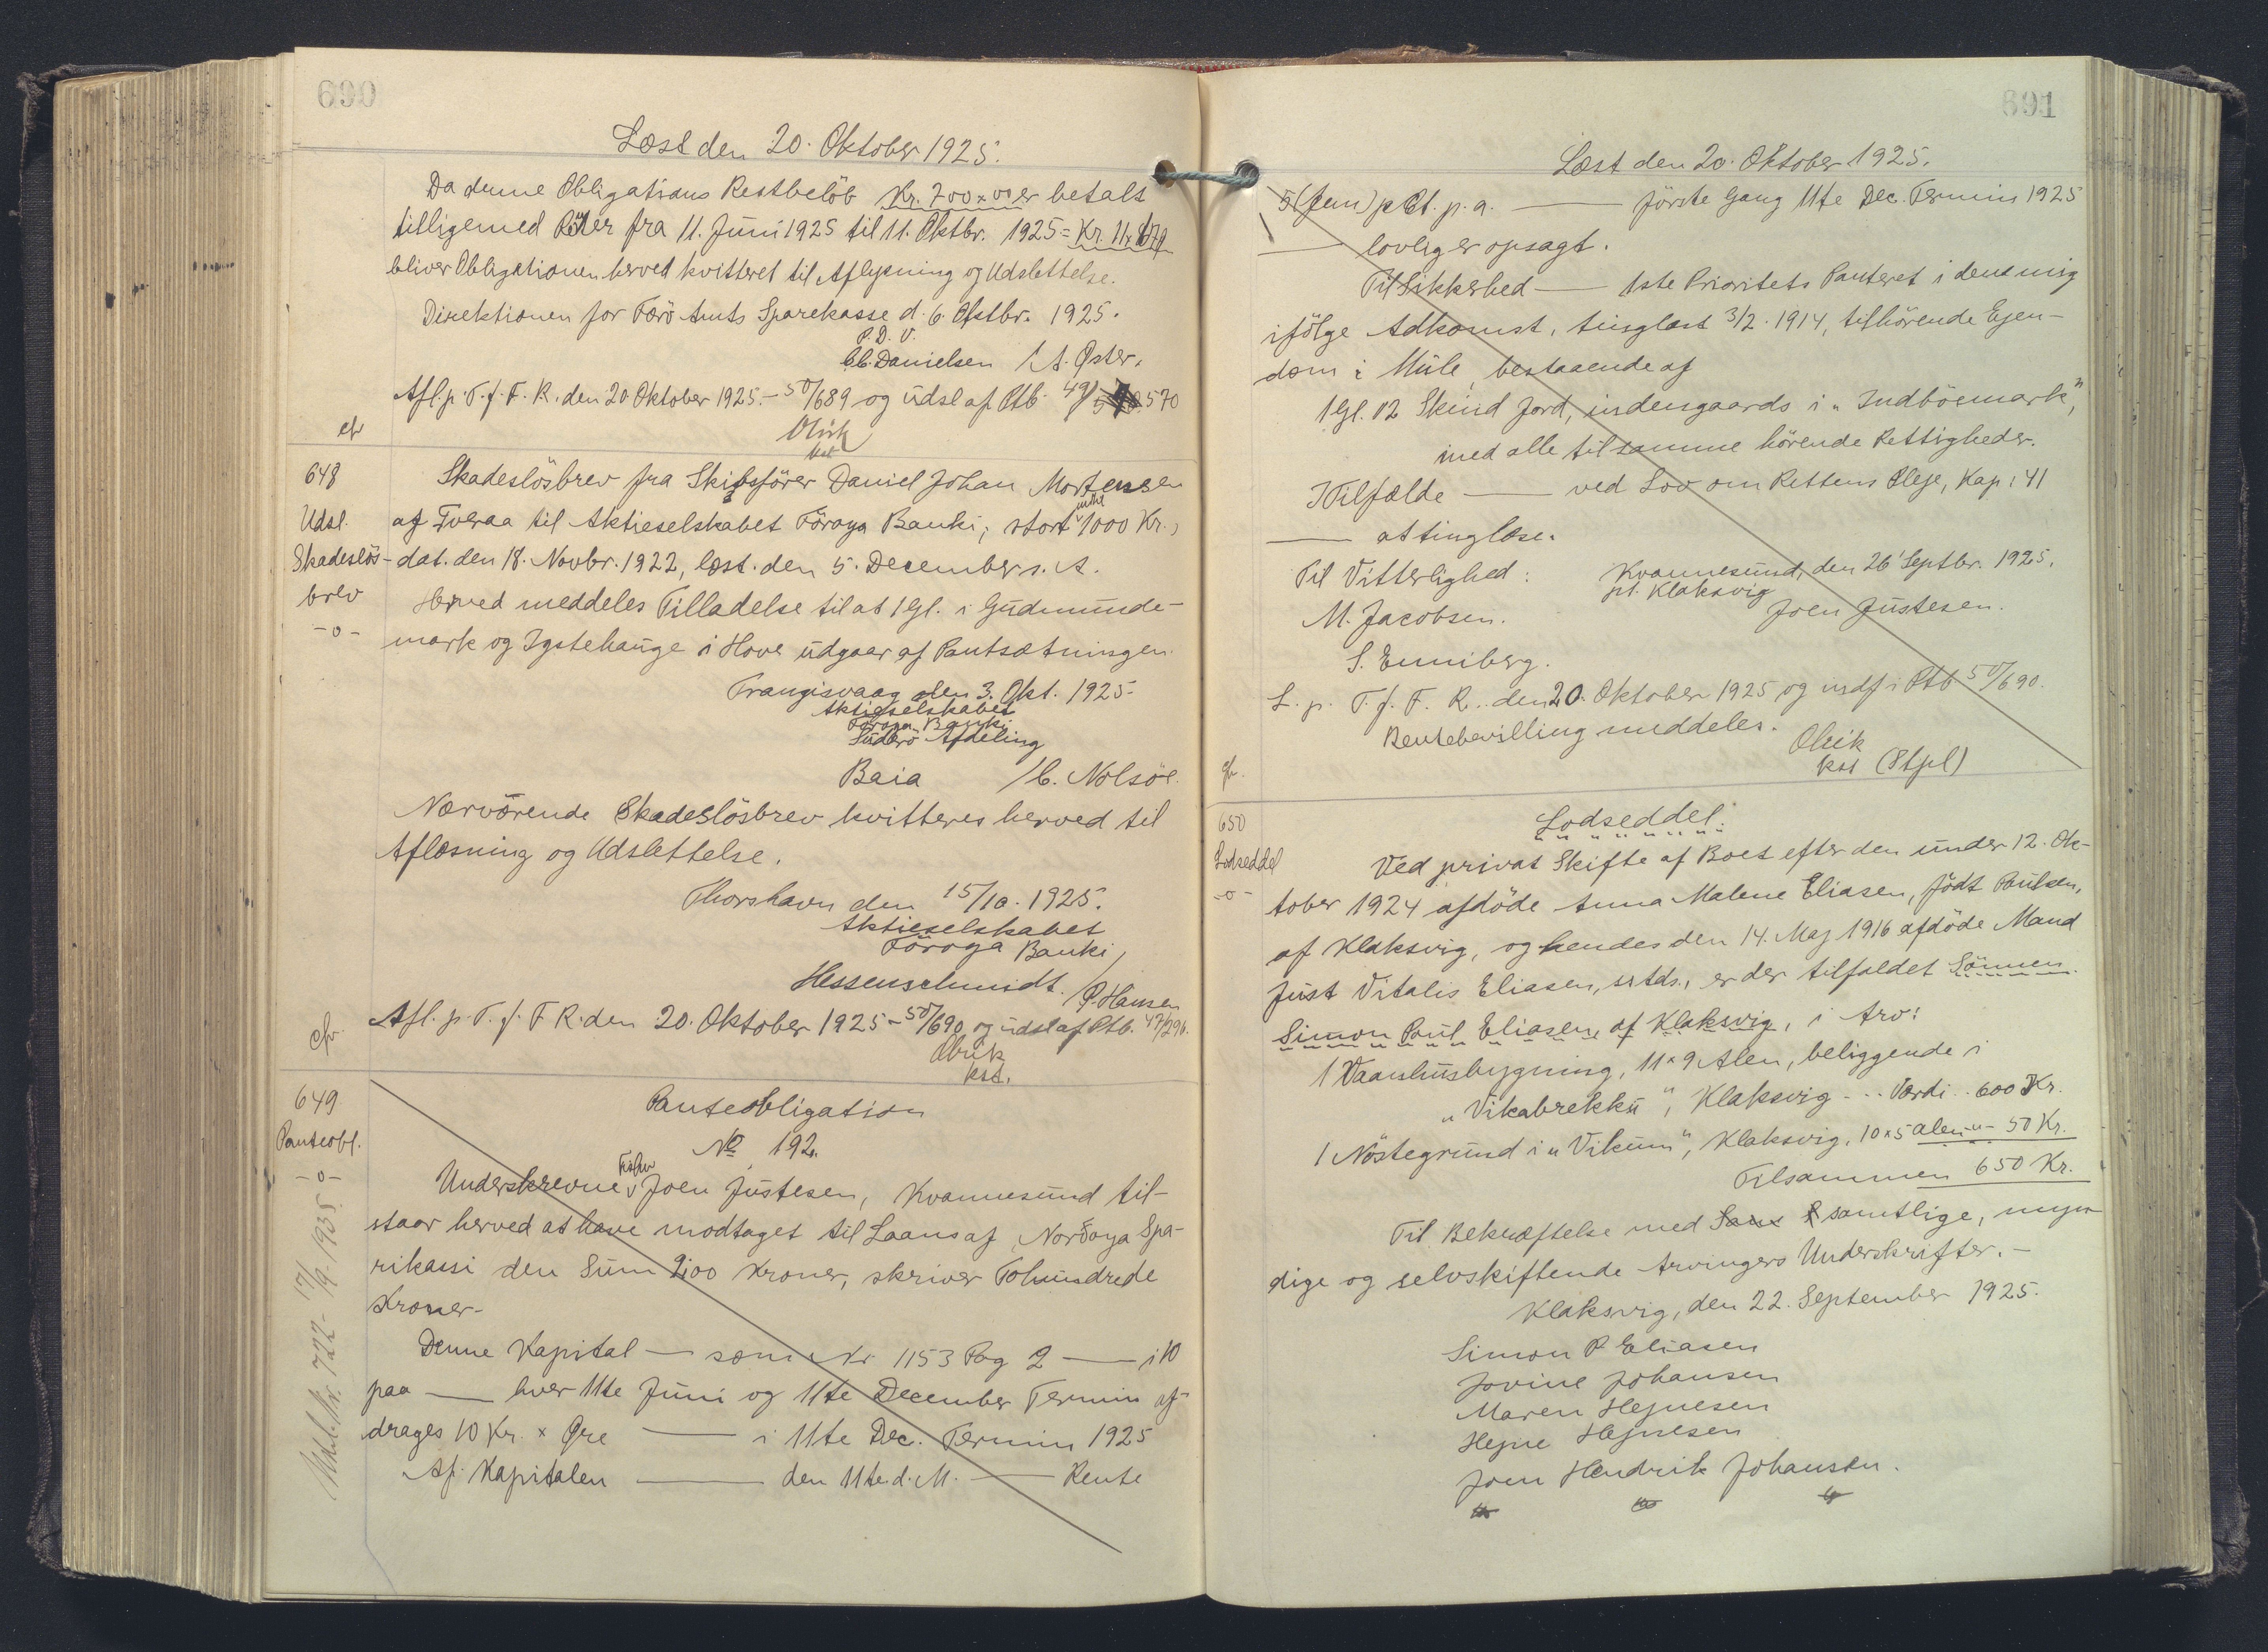 690
Læst den 20. Oktober 1925.
Da denne Obligations Restbelöb Kr. 700 x 00 er betalt
tilligemed Renter fra 11. Juni 1925 til 11. Oktbr. 1925 = Kr. 11x67ø
bliver Obligationen herved kvitteret til Aflysning og Udslettelse.
Direktionen for Færö Amts Sparekasse d. 6. Oktbr. 1925.
P. D. V.
Chr. Danielsen / A. Øster.
Afl. p. T. f. F. R. den 20 Oktober 1925 - 50/689 og udsl af Ptb. 49/570
Olrik
kst
cfr
648
Udsl.
Skadeslös-
brev
-o-
Skadeslösbrev fra Skibsförer Daniel Johan Mortensen
af Tveraa til Aktieselskabet Föroya Banki, stort indtil 1000 Kr.,
dat. den 18. Novbr. 1922, læst. den 5. December s. A.
Herved meddeles Tilladelse til at 1 Gl. i Gudmunde-
mark og Igstehauge i Hove udgaar af Pantsætningen.
Trangisvaag den 3. Okt. 1925.
Aktieselskabet
Föroya Banki
Suderö Afdeling
Baia / C. Nolsöe.
Nærværende Skadeslösbrev kvitteres herved til
Aflæsning og Udslettelse.
Thorshavn den 15/10. 1925.
Aktieselskabet
Föroya Banki
Hessenschmidt. / P. Hansen
Afl. p. T. f. F R. den 20. Oktober 1925 - 50/690 og udsl af Ptb. 47/296.
Olrik
kst.
cfr.
649
Panteobl.
-o-
Udsl. Nr. 722 - 17/9. 1935.
Panteobligation
No 192.
Underskrevne Fisker Joen Justesen, Kvannesund til-
staar herved at have modtaget til Laans af Norðoya Spa-
rikassi den Sum 200 Kroner, skriver Tohundrede
Kroner-
Denne Kapital — som Nr 1153 Pag 2 — i 10
paa — hver 11te Juni og 11te December Termin af-
drages 10 Kr. x Øre — i 11te Dec. Termin 1925
Af Kapitalen — den 11te d. M. — Rente
691
Læst den 20. Oktober 1925.
5 (fem) pCt. p. a. — förste Gang 11te Dec. Termin 1925
— lovlig er opsagt.
Til Sikkerhed — 1ste Prioritets Panteret i den mig
ifölge Adkomst, tinglæst 3/2. 1914, tilhörende Ejen-
dom i Mule, bestaaende af
1 Gl. 12 Skind Jord, indengaards i „Indböemark",
med alle til samme hörende Rettigheder.
I Tilfælde — ved Lov om Rettens Pleje, Kap: 41
— at tinglæse.
Til Vitterlighed: Kvannesund, den 26' Septbr. 1925.
pt. Klaksvig
M. Jacobsen. Joen Justesen.
S. Enniberg.
L. p. T. f. F. R. den 20. Oktober 1925 og indf i Ptb 50/690.
Rentebevilling meddeles.
Olrik
kst (Stpl)
cfr.
650
Lodseddel
-o-
Lodseddel.
Ved privat Skifte af Boet efter den under 12. Ok-
tober 1924 afdöde Anna Malene Eliasen, födt Poulsen,
af Klaksvig, og hendes den 14. Maj 1916 afdöde Mand
Just Vitalis Eliasen, srtds., er der tilfaldet Sönnen
Simon Poul Eliasen, af Klaksvig, i Arv:
1 Vaanhusbygning, 11 x 9 Alen, beliggende i
„Vikabrekku", Klaksvig - .. Værdi .. 600 Kr.
1 Nöstegrund i „Vikum", Klaksvig, 10 x 5 alen -"- 50 Kr.
Tilsammen 650 Kr.
Til Bekræftelse med samtlige, myn-
dige og selvskiftende Arvingers Underskrifter. -
Klaksvig, den 22. September 1925.
Simon P Eliasen
Jovine Johansen
Maren Hejnesen
Hejne Hejnesen
Joen Hendrik Johansen.